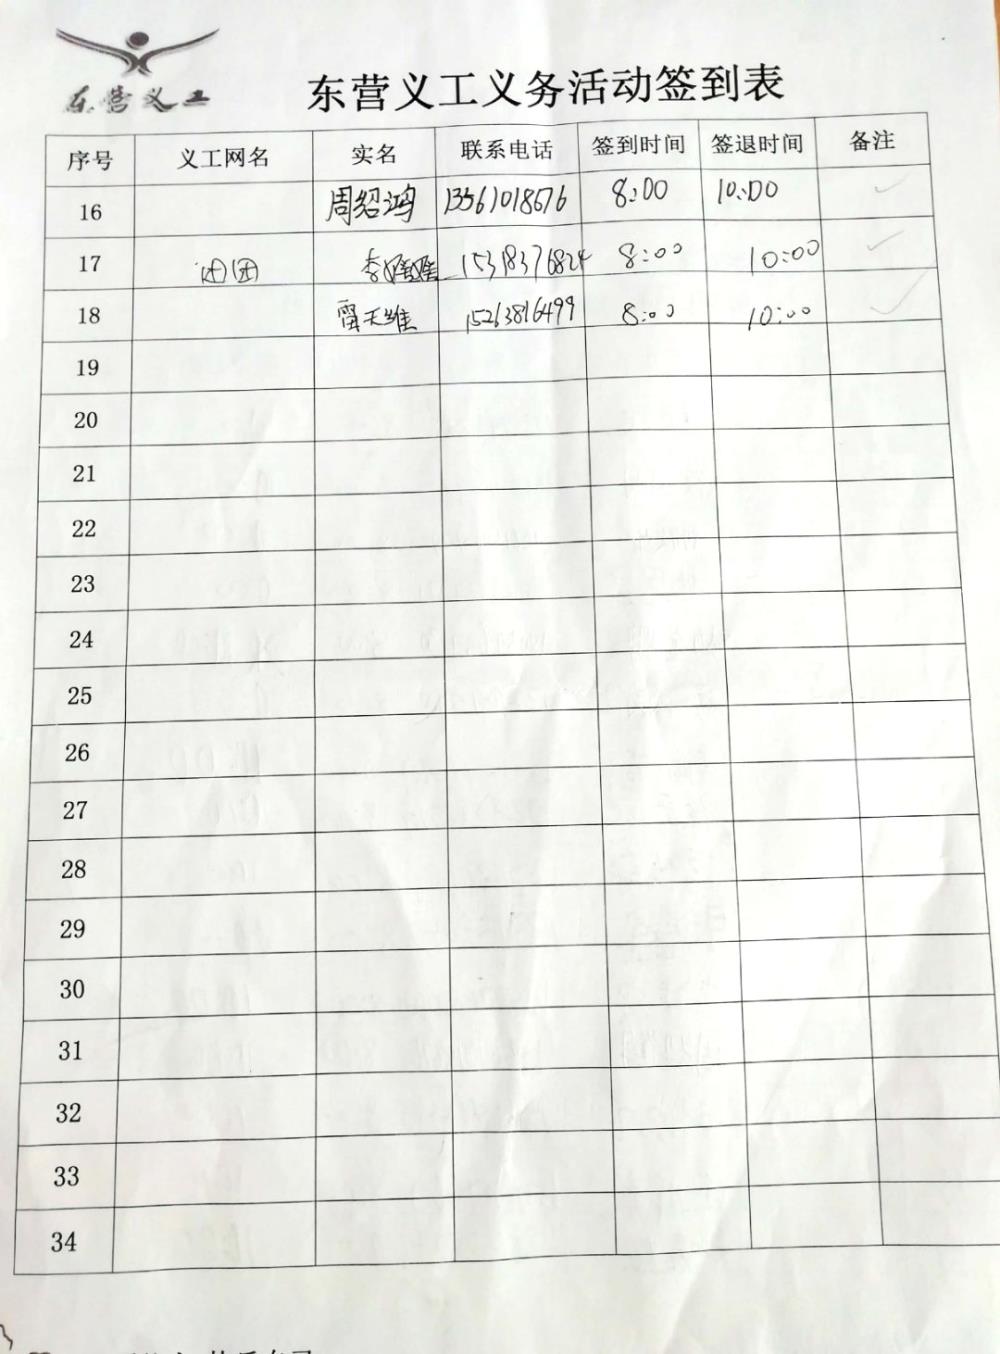 东营义工
东营义工义务活动签到表
序号 义工网名 实名 联系电话 签到时间 签退时间 备注
16 周绍鸿 13561018676 8:00 10:00 ✓
17 团团 李 15318376824 8:00 10:00 ✓
18 雷天维 15263816499 8:00 10:00 ✓
19
20
21
22
23
24
25
26
27
28
29
30
31
32
33
34